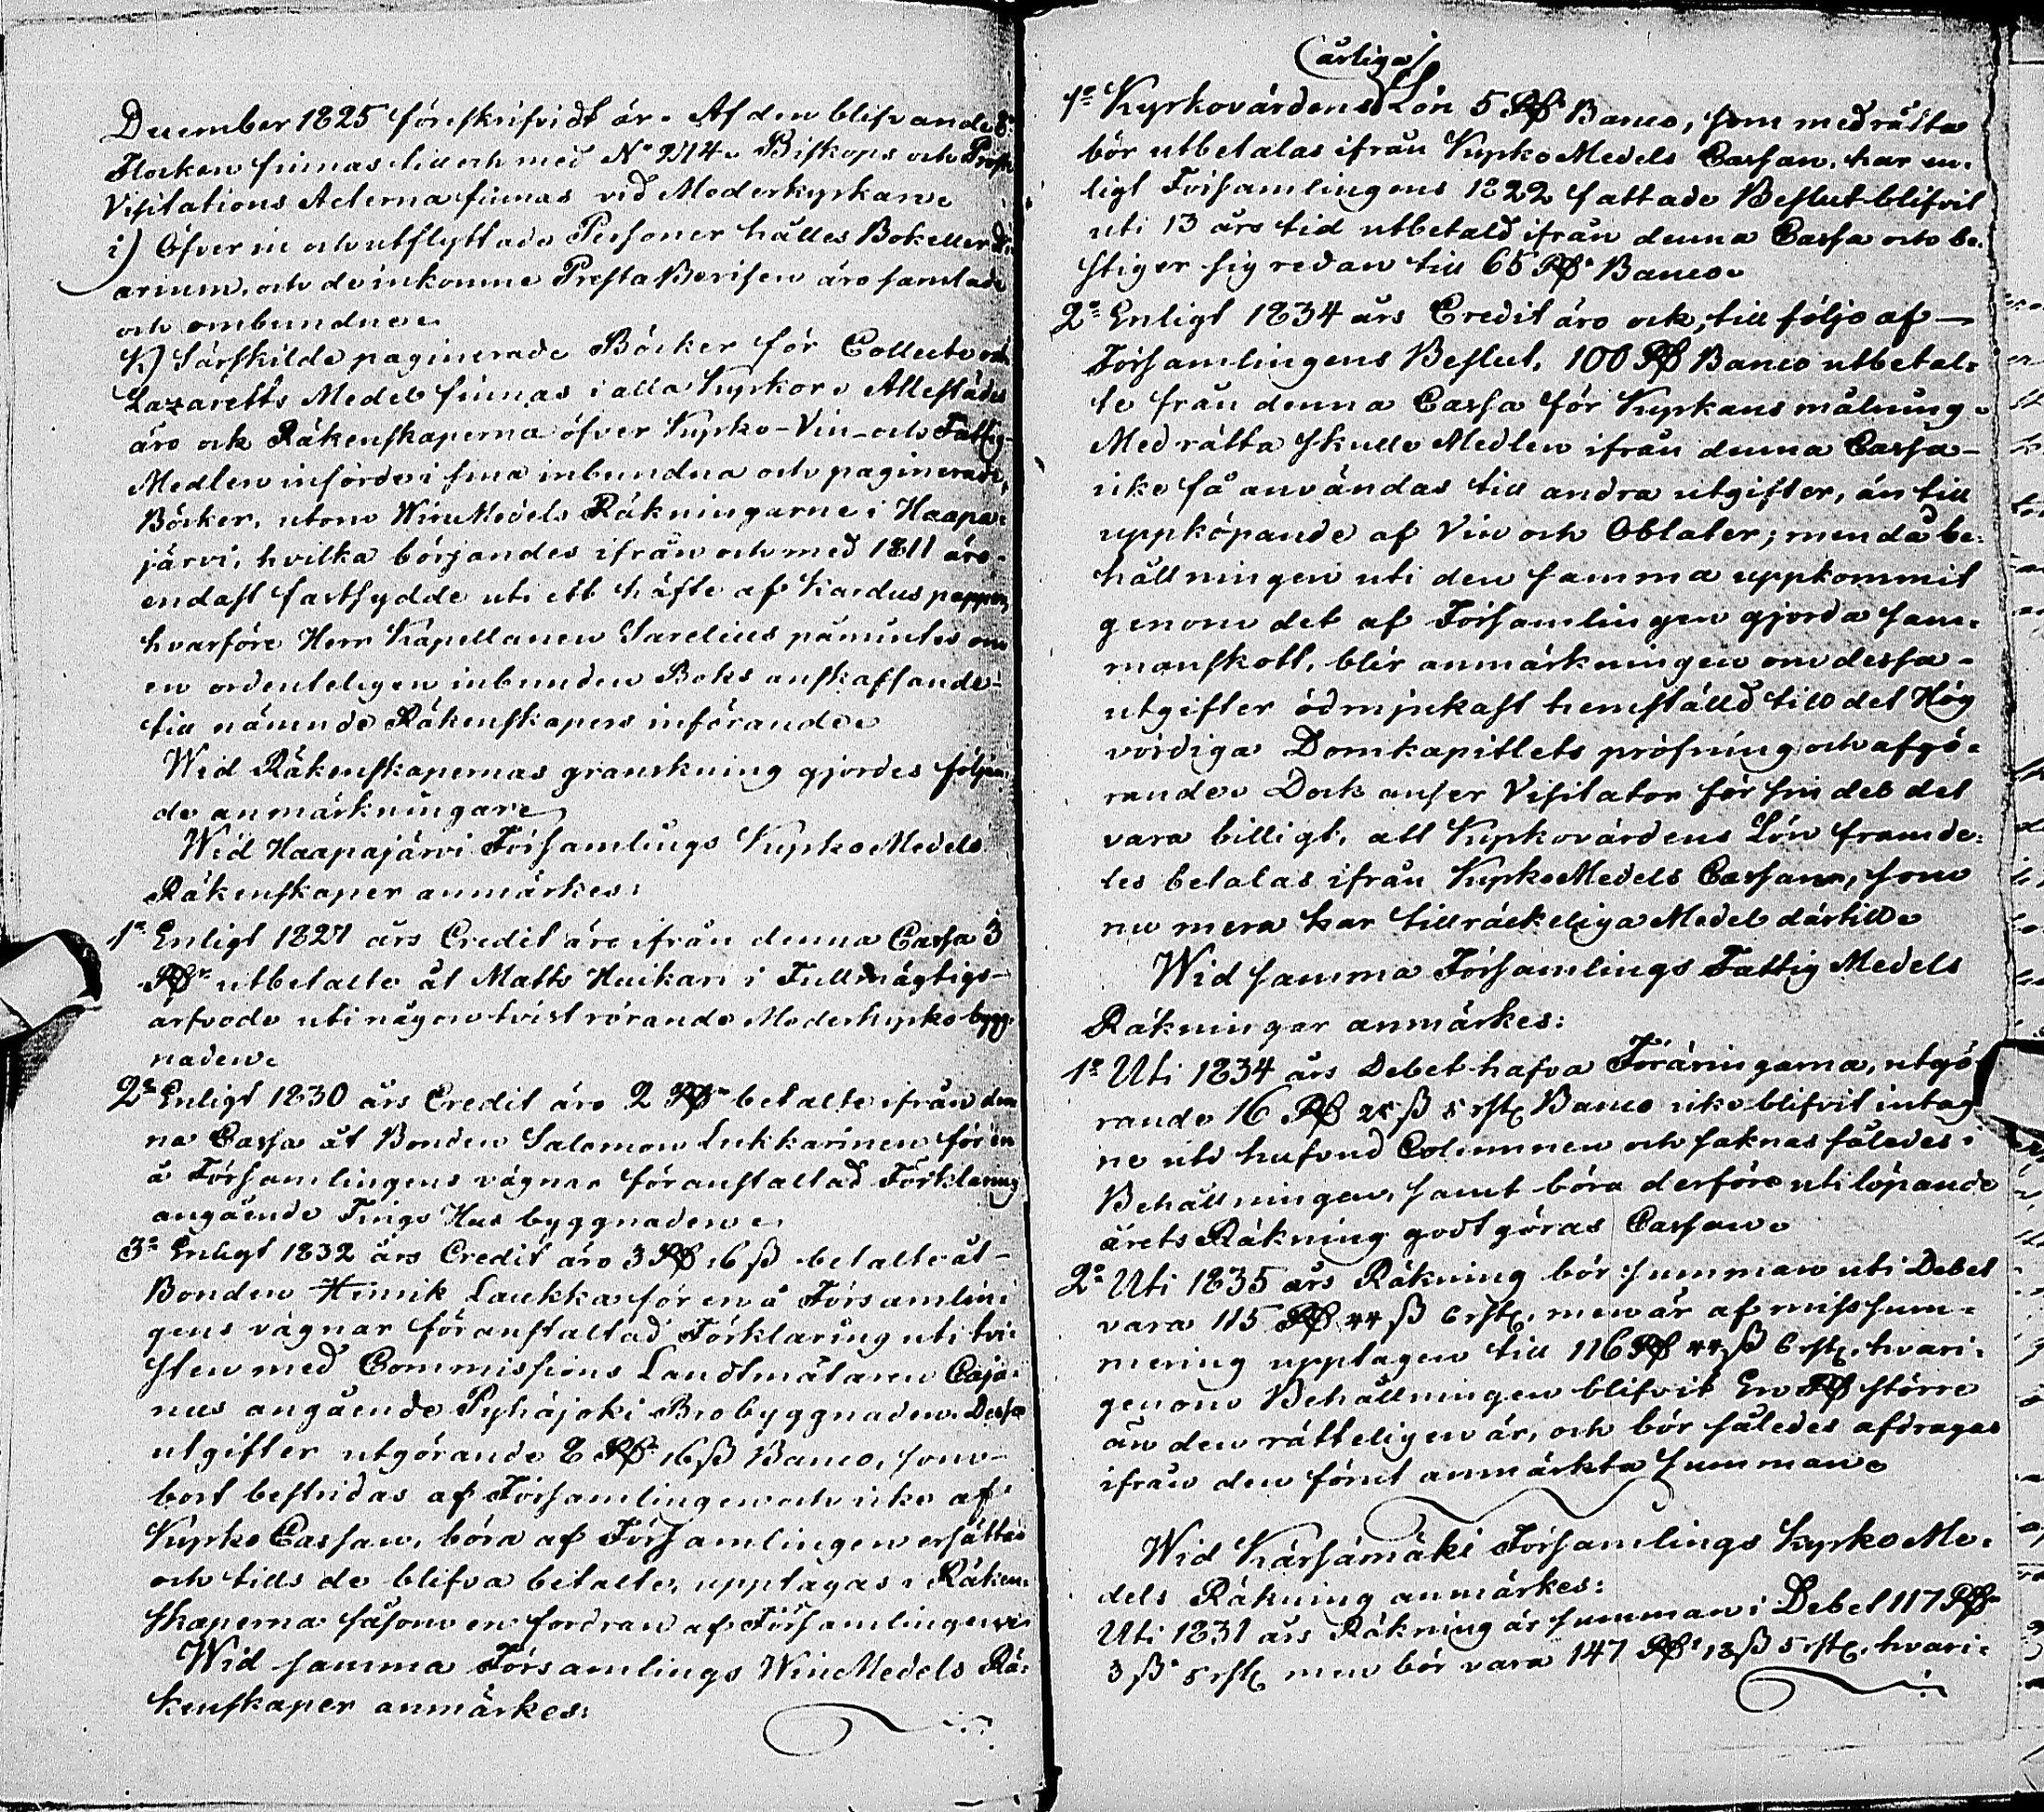 December 1825 föreskrifvidt är. Af den blifvande 8:
Flocken finnas till och med N:o 274. Biskops och Prost
Visitations Acterna finnas vid Moderkyrkan.
i) Öfver in och utflyttade Personer hålles Bok eller Di-
arium, och de inkomne PrestaBevisen äro samlade
och ombundne.
k) Särskilde paginerade Böcker för Collect och
Lazaretts Medel finnas i alla Kyrkor. Allestädes
äro ock Räkenskaperna öfver Kyrko-Vin- och Fattig-
Medlen införde i sina inbundna och paginerade,
Böcker, utom WinMedels Räkningarne i Haapa-
järvi, hvilka börjandes ifrån och med 1811 äro
endast fastsydde uti ett häfte af Kardus papper,
hvarföre Herr Kapellanen Sarelius påmintes om
en ordenteligen inbunden Boks anskaffande
till nämnde Räkenskapers införande.
Wid Räkenskapernas granskning gjordes följan-
de anmärkningar:
Wid Haapajärvi Församlings KyrkoMedels
Räkenskaper anmärkes:
1:o Enligt 1827 års Credit äro ifrån denna Cassa 3
Rd:r utbetalte åt Matts Huikari i Fullmägtigs-
arfvode uti någon tvist rörande Moderkyrko bygg-
naden.
2:o Enligt 1830 års Credit äro 2 Rd:r betalte ifrån den
na Cassa åt Bonden Salomon Lukkarinen för en
å Församlingens vägnar föranstaltad Förklaring
angående Tings Hus byggnaden.
3:o Enligt 1832 års Credit äro 3 Rd 16 ß betalte åt
Bonden Henrik Laukka för en å Försam̄lin-
gens vägnar föranstaltad Förklaring uti tvi-
sten med Commissions Landtmätaren Caja-
nus angående Pyhäjoki Brobyggnaden. Dessa
utgifter utgörande 8 Rd:r 16 ß Banco, som
bort bestridas af Församlingen och icke af
Kyrko Cassan, böra af Församlingen ersättas
och tills de blifva betalte, upptagas i Räken-
skaperna såsom en fordran af Församlingen.
Wid samma Församlings WinMedels Rä-
kenskaper anmärkes:
årliga
1:o Kyrkovärdens Lön 5 Rd:r Banco, som med rätta
bör utbetalas ifrån KyrkoMedels Cassan, har en-
ligt Församlingens 1822 fattade Beslut blifvit
uti 13 års tid utbetald ifrån denna Cassa och be-
stiger sig redan till 65 Rd:r Banco.
2:o Enligt 1834 års Credit äro ock, till följe af
Församlingens Beslut, 100 Rd Banco utbetal-
te från denna Cassa för Kyrkans målning.
Med rätta skulle Medlen ifrån denna Cassa
icke få användas till andra utgifter, än till
uppköpande af Vin och Oblater; men då be-
hållningen uti den samma uppkommit
genom det af Församlingen gjorda sam-
manskott, blir anmärkningen om dessa
utgifter ödmjukast hemställd till det Hög
vördiga Domkapitlets pröfning och afgö-
rande. Dock anser Visitator för sin del det
vara billigt, att Kyrkovärdens Lön framde-
les betalas ifrån KyrkoMedels Cassan, som
nu mera har tillräckeliga Medel därtill.
Wid samma Församlings Fattig Medels
Räkningar anmärkes:
1:o Uti 1834 års Debet hafva Föräringarna, utgö-
rande 16 Rd 25 ß 5 rst. Banco icke blifvit intag
ne uti hufvud Columnen och saknas således i
Behållningen, samt böra derföre uti löpande
årets Räkning godtgöras Cassan.
2:o Uti 1835 års Räkning bör summan uti Debet
vara 115 Rd 44 ß 6 rst. men är af missum-
mering upptagen till 116 Rd 44 ß 6 rst. hvari-
genom Behållningen blifvit En Rd större
än den rätteligen är, och bör således afdragas
ifrån den förut anmärkta summan.
Wid Kärsämäki Församlings KyrkoMe-
dels Räkning anmärkes:
Uti 1831 års Räkning är summan i Debet 117 Rd:r
3 ß 5 rst. men bör vara 147 Rd:r 13 ß 5 rst. hvari-